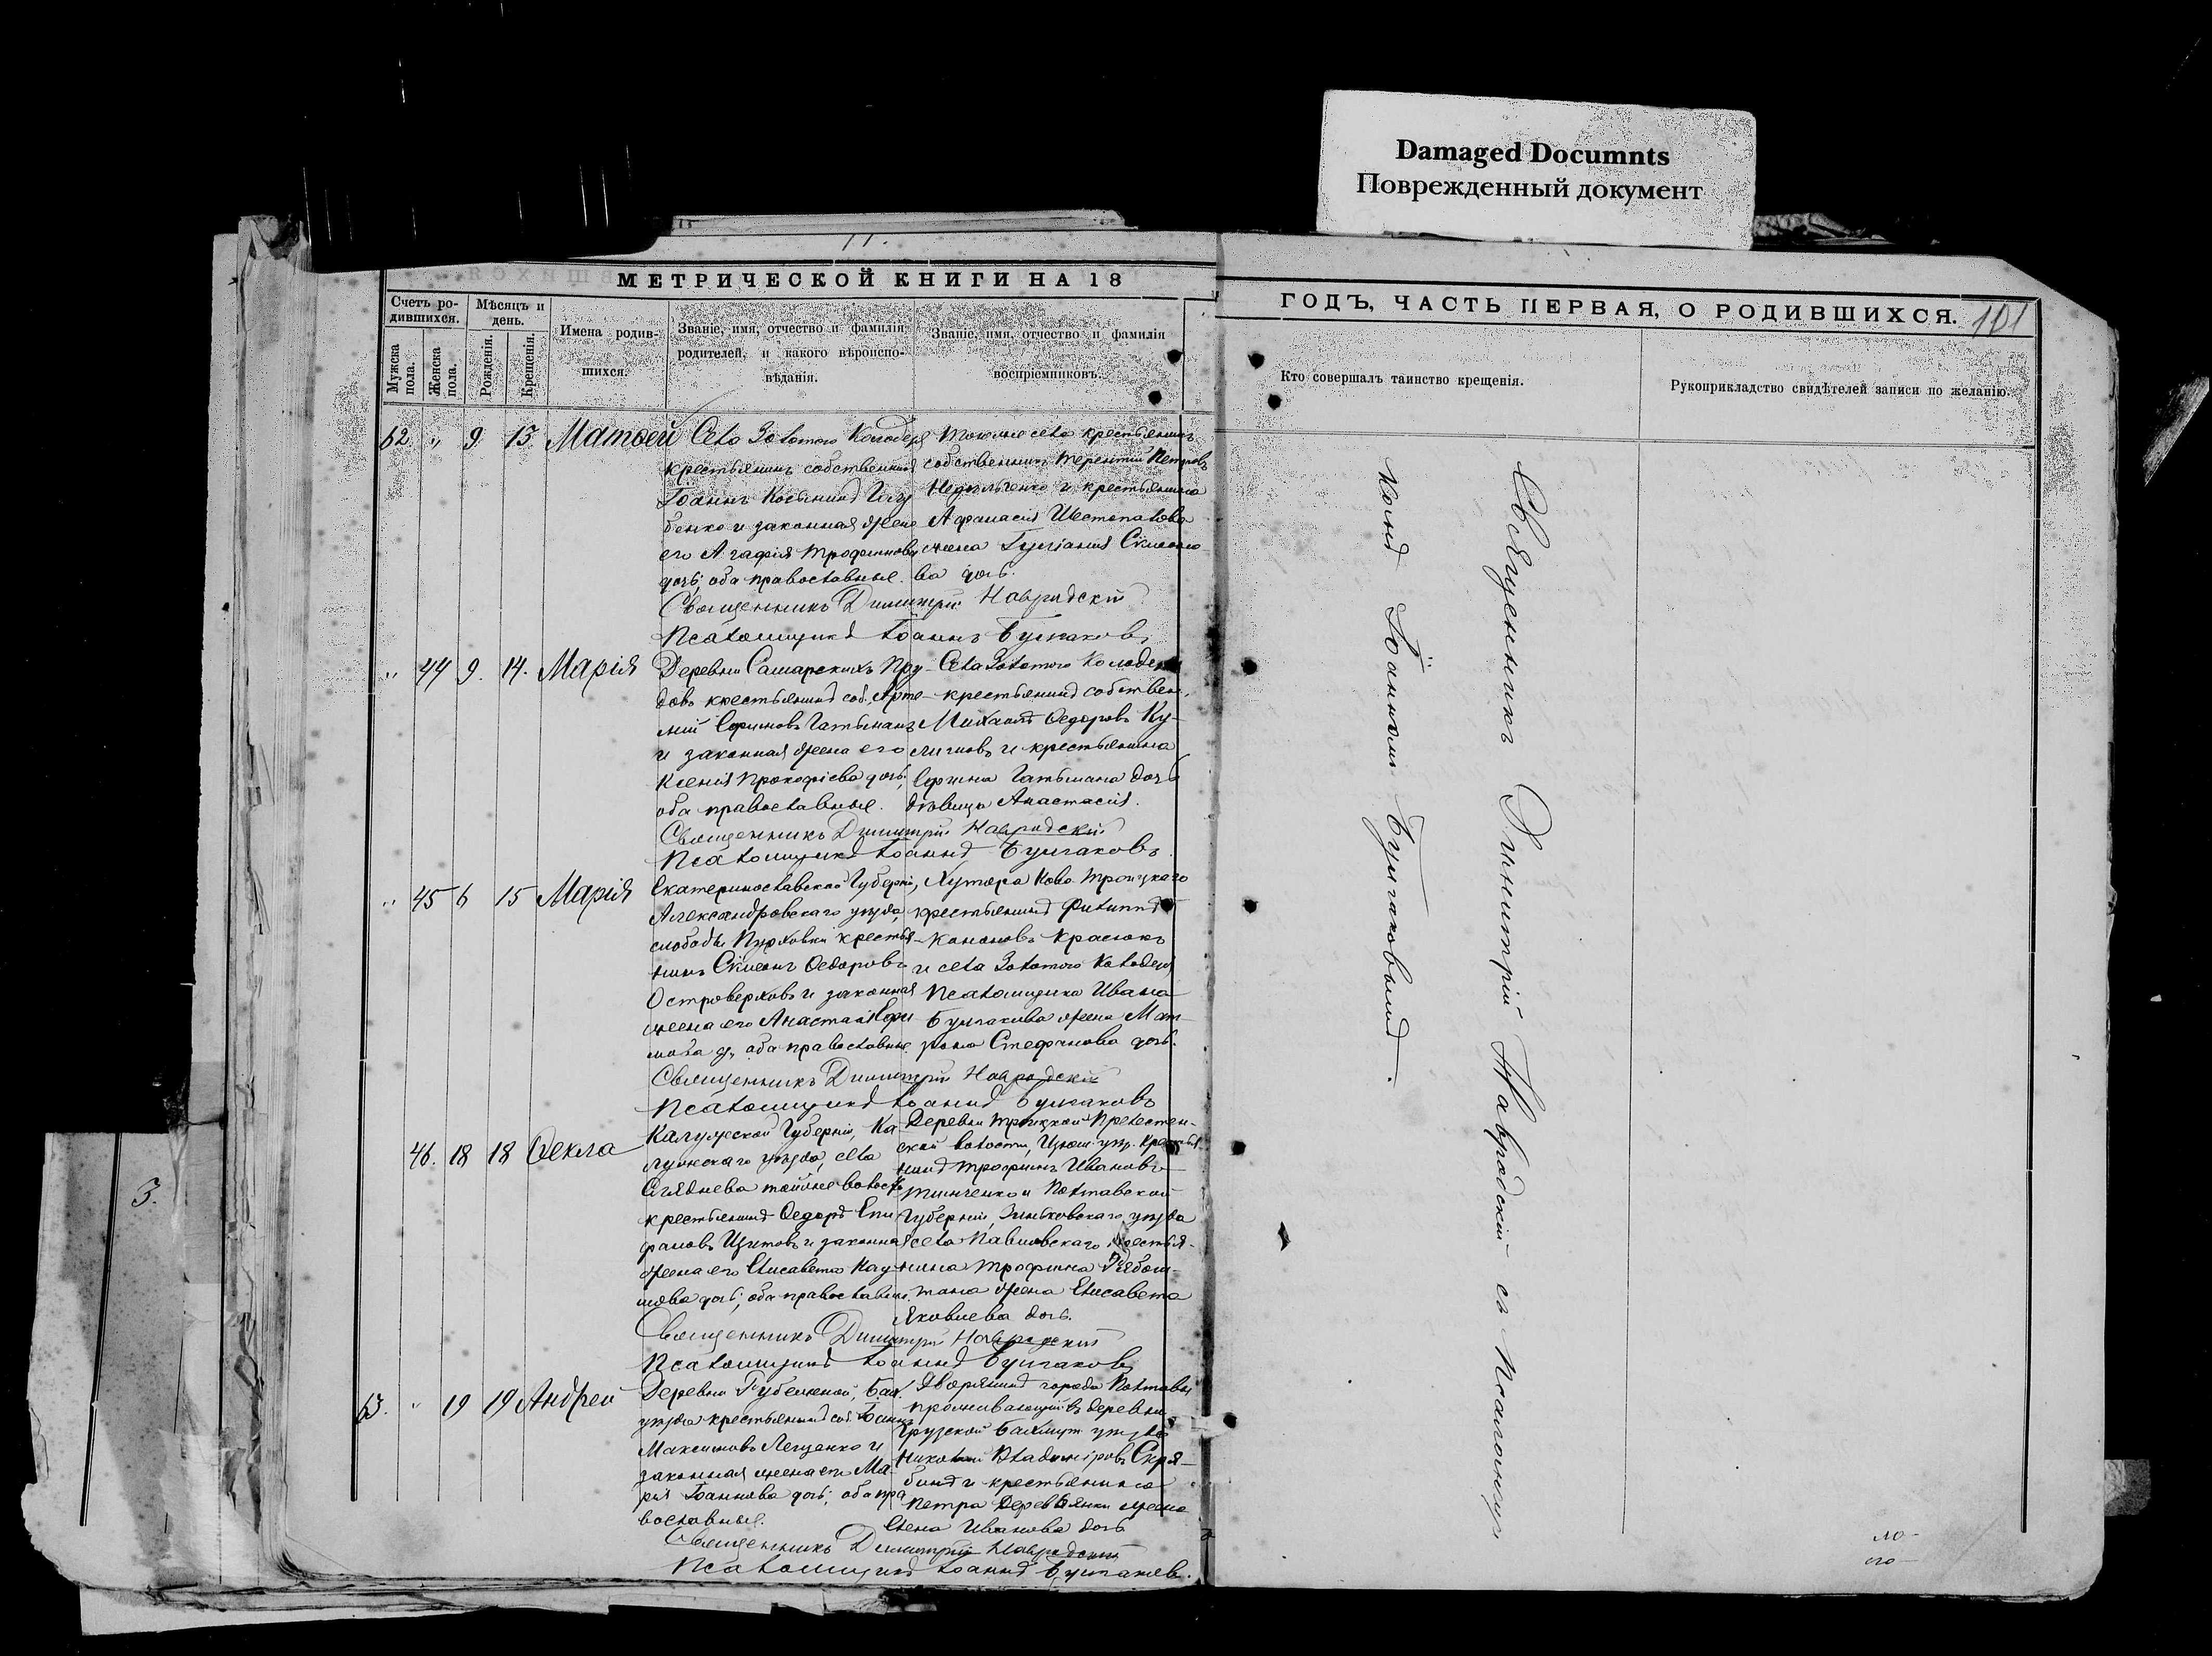 Damaged Documnts
Поврежденный документ
МЕТРИЧЕСКОЙ КНИГИ НА 18
ГОДЪ, ЧАСТЬ ПЕРВАЯ, О РОДИВШИХСЯ. 101
Счетъ ро-
дившихся.
Мѣсяцъ и
день.
Мужска
пола.
Женска
пола.
Рожденія.
Крещенія.
Имена родив-
шихся.
Званіе, имя, отчество и фамилія
родителей, и какого вѣроиспо-
вѣданія.
Званіе, имя, отчество и фамилія
воспріемниковъ.
Кто совершалъ таинство крещенія.
Рукоприкладство свидѣтелей записи по желанію.
62 " 9 13 Матѳей
Села Золотого Колодезя
крестьянинъ собственникъ
Іоаннъ
бенко и законная жена
его Агафія Трофимова
дочь; оба православные.
Тогоже села крестьянинъ
собственникъ Терентій Петровъ
и крестьянина
Афанасія Шестопалова
жена
ва дочь.
Священникъ Димитрій Навродскій
Псаломщикъ Іоаннъ Булгаковъ
" 44 9. 14. Марія
Деревни Самарскихъ Пру-
довъ крестьянинъ соб. Арте-
мій Ефимовъ Гатьманъ
и законная жена его
Ксенія Прокофіева дочь;
оба православные.
Села Золотого Колодезя
крестьянинъ собствен.
Михаилъ Ѳедоровъ Ку-
лиговъ и крестьянина
Ефима Гатьмана дочь
дѣвица Анастасія.
Священникъ Димитрій Навродскій
Псаломщикъ Іоаннъ Булгаковъ.
" 45 6 15 Марія
Екатеринославской Губерніи,
Александровскаго уѣзда,
слободы крестья-
нинъ Симеонъ Ѳедоровъ
Островерховъ и законная
жена его Анастасія Ефи-
мова д., оба православные.
Хутора Ново-Троицкаго
крестьянинъ Филиппъ
Кононовъ Красюкъ
и села Золотого Колодезя
Псаломщика Ивана
Булгакова жена Мат-
рона Стефанова дочь.
Священникъ Димитрій Навродскій
Псаломщикъ Іоаннъ Булгаковъ
46. 18 18 Ѳекла
Калужской Губерніи, Ка-
лужскаго уѣзда, села
тойже волости
крестьянинъ Ѳедоръ Епи-
фановъ и законная
жена его Елисавета Нау-
мова дочь, оба православные.
Деревни Троицкой
ской волости, Изюм. уѣз. крестья
нинъ Трофимъ Ивановъ
Тимченко и Полтавской
Губерніи, Зиньковскаго уѣзда
села Павловскаго крестья-
нина Трофима
жена Елисавета
Яковлева дочь.
Священникъ Димитрій Навродскій
Псаломщикъ Іоаннъ Булгаковъ
63. " 19 19 Андрей
Деревни Бах.
уѣзда крестьянинъ соб. Іоаннъ
Максимовъ Лещенко и
законная жена его Ма-
рія Іоаннова дочь; оба пра-
вославные.
Дворянинъ города Полтавы
проживающій въ деревни
Грузской Бахмут. уѣзда
Николай Владиміровъ Скря-
бинъ и крестьянина
Петра Деревянки жена
Елена Иванова дочь
Священникъ Димитрій Навродскій
Псаломщикъ Іоаннъ Булгаковъ.
Священникъ Димитрій Навродскій съ Псаломщи
комъ Іоанномъ Булгаковымъ.
3.